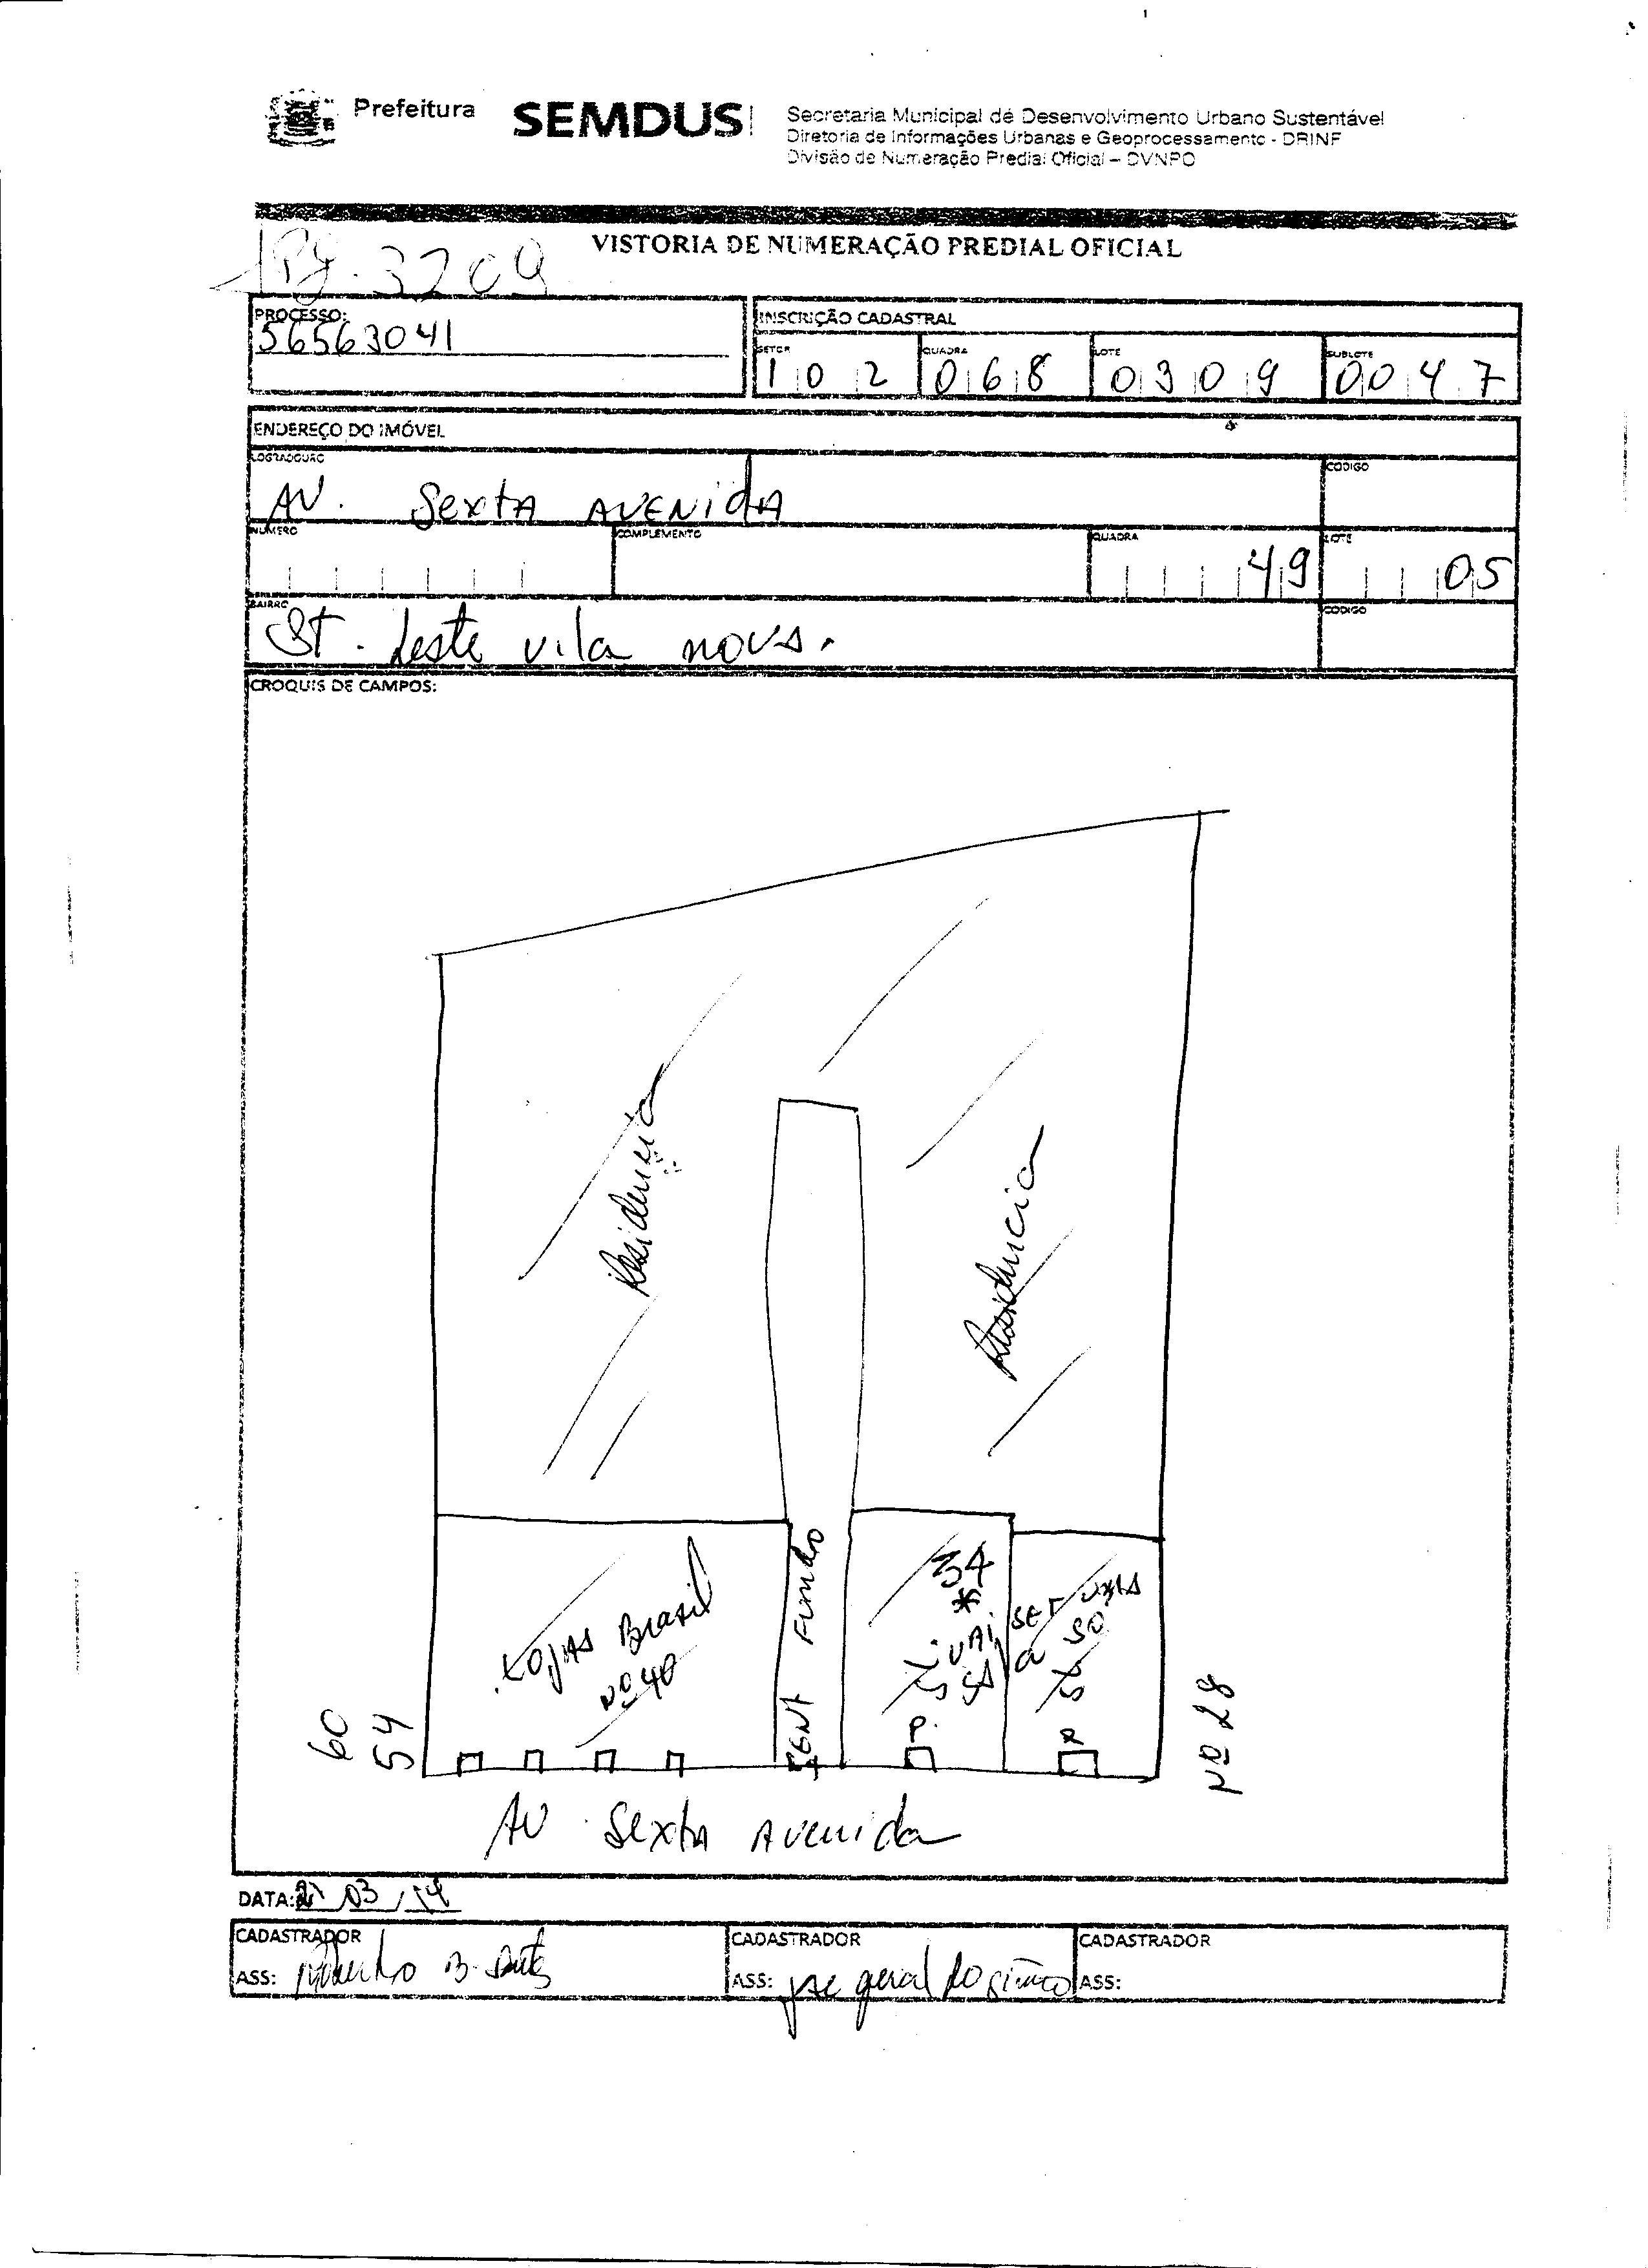 Prefeitura
SEMDUS
Secretaria Municipal de Desenvolvimento Urbano Sustentável
Diretoria de Informações Urbanas e Geoprocessamento - DRINF
Divisão de Numeração Predial Oficial – DVNPO
VISTORIA DE NUMERAÇÃO PREDIAL OFICIAL
3209
PROCESSO:
56563041
INSCRIÇÃO CADASTRAL
SETOR
102
QUADRA
068
LOTE
0309
SUBLOTE
0047
ENDEREÇO DO IMÓVEL
LOGRADOURO
AV. Sexta AVENidA
CODIGO
NUMERO
COMPLEMENTO
QUADRA
49
LOTE
05
BAIRRO
St. Leste vila nova.
CODIGO
CROQUIS DE CAMPOS:
Residencia
Residencia
Lojas Brasil
Nº 40
Fundo
34
*
P.
P
60
54
Nº 28
AV Sexta Avenida
DATA: 03/14
CADASTRADOR
ASS:
CADASTRADOR
ASS: geral
CADASTRADOR
ASS: